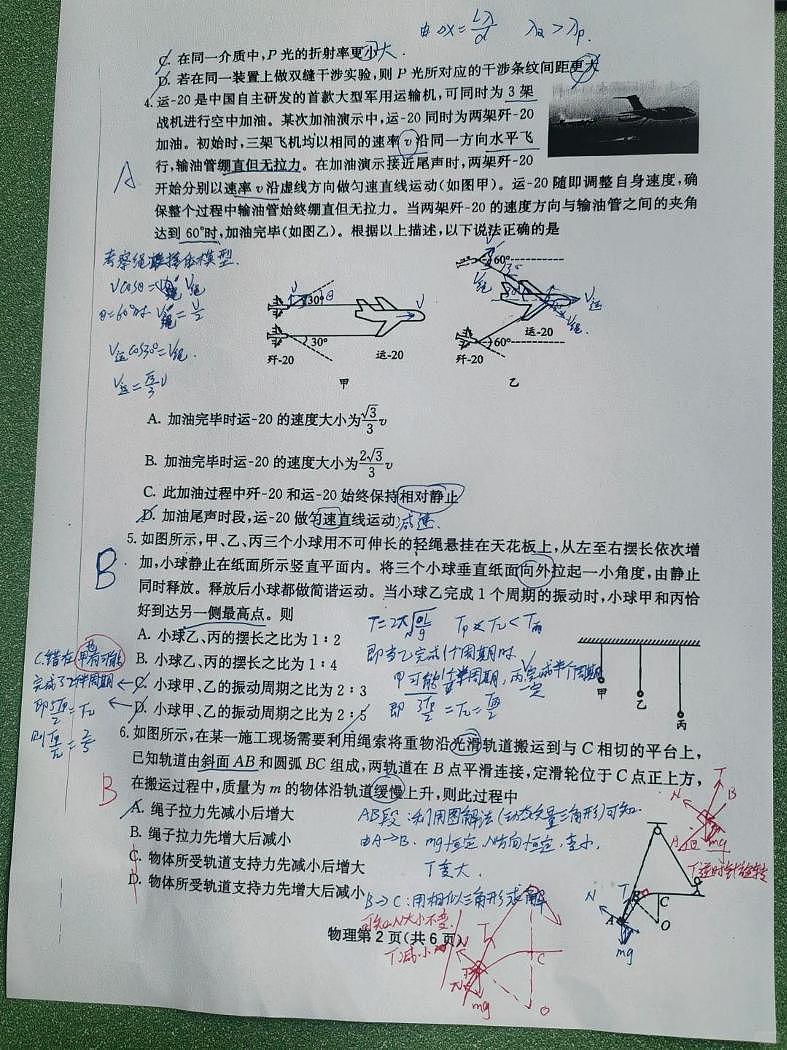 由 ΔX = Lλ/d λQ > λP.
C. 在同一介质中,P 光的折射率更小 大.
D. 若在同一装置上做双缝干涉实验,则 P 光所对应的干涉条纹间距更大
4. 运-20 是中国自主研发的首款大型军用运输机,可同时为 3 架
战机进行空中加油。某次加油演示中,运-20 同时为两架歼-20
加油。初始时,三架飞机均以相同的速率 v 沿同一方向水平飞
行,输油管绷直但无拉力。在加油演示接近尾声时,两架歼-20
A
开始分别以速率 v 沿虚线方向做匀速直线运动(如图甲)。运-20 随即调整自身速度,确
保整个过程中输油管始终绷直但无拉力。当两架歼-20 的速度方向与输油管之间的夹角
达到 60°时,加油完毕(如图乙)。根据以上描述,以下说法正确的是
θ=60°时 V绳=V/2
V运cos30°=V绳.
V运=√3/3 v
30°
θ
V
30°
歼-20
运-20
甲
60°
V绳
V运
运-20
60°
歼-20
乙
A. 加油完毕时运-20 的速度大小为√3/3 v
B. 加油完毕时运-20 的速度大小为2√3/3 v
C. 此加油过程中歼-20 和运-20 始终保持相对静止
D. 加油尾声时段,运-20 做匀速直线运动 减速.
5. 如图所示,甲、乙、丙三个小球用不可伸长的轻绳悬挂在天花板上,从左至右摆长依次增
B
加,小球静止在纸面所示竖直平面内。将三个小球垂直纸面向外拉起一小角度,由静止
同时释放。释放后小球都做简谐运动。当小球乙完成 1 个周期的振动时,小球甲和丙恰
好到达另一侧最高点。则
A. 小球乙、丙的摆长之比为 1∶2
B. 小球乙、丙的摆长之比为 1∶4
C. 小球甲、乙的振动周期之比为 2∶3
D. 小球甲、乙的振动周期之比为 2∶5
即当乙完成1个周期时
甲
乙
丙
6. 如图所示,在某一施工现场需要利用绳索将重物沿光滑轨道搬运到与 C 相切的平台上,
已知轨道由斜面 AB 和圆弧 BC 组成,两轨道在 B 点平滑连接,定滑轮位于 C 点正上方,
B
在搬运过程中,质量为 m 的物体沿轨道缓慢上升,则此过程中
A. 绳子拉力先减小后增大
B. 绳子拉力先增大后减小
C. 物体所受轨道支持力先减小后增大
D. 物体所受轨道支持力先增大后减小
AB段:利用图解法(动态矢量三角形)可知.
由A→B, mg恒定,N方向恒定,变小,
T变大.
B→C:用相似三角形求解
可知N大小不变.
T减小
T逆时针旋转
N
T
A
B
C
O
mg
物理第 2 页(共 6 页)